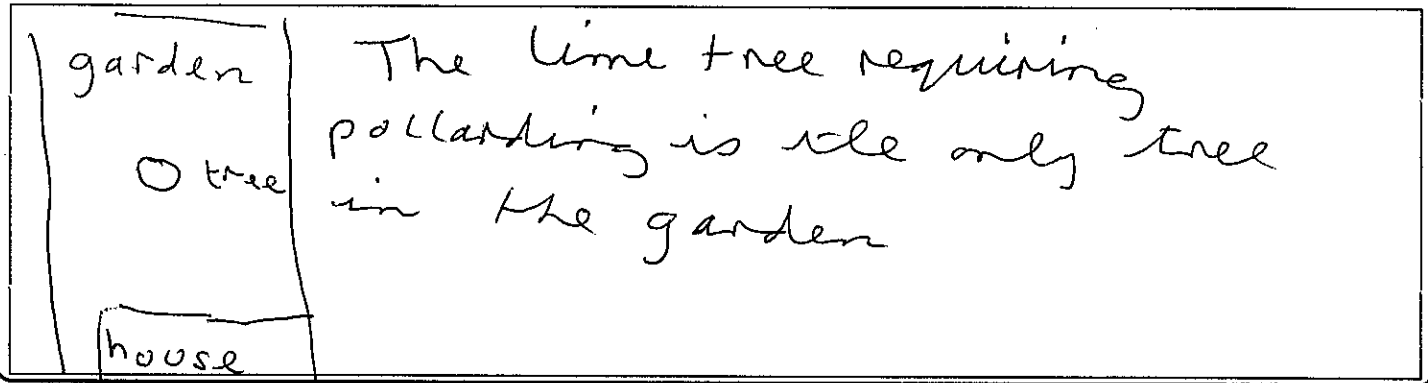 garden
tree
house
The lime tree requiring
pollarding is the only tree
in the garden